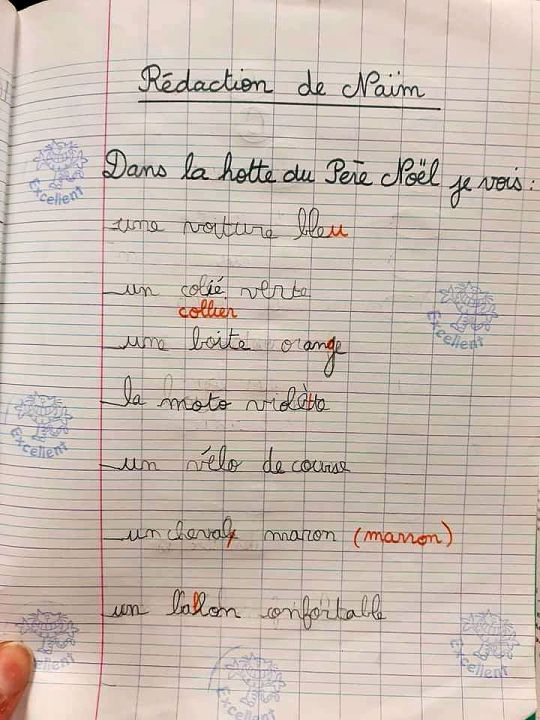 Rédaction de Naïm
Dans la hotte du Père Noël je vois :
Excellent
une voiture bleu
un colié verte
collier
Excellent
une boite orange
la moto violètte
Excellent
un vélo de course
un cheval maron (marron)
un ballon confortable
Excellent
Excellent
Excellent